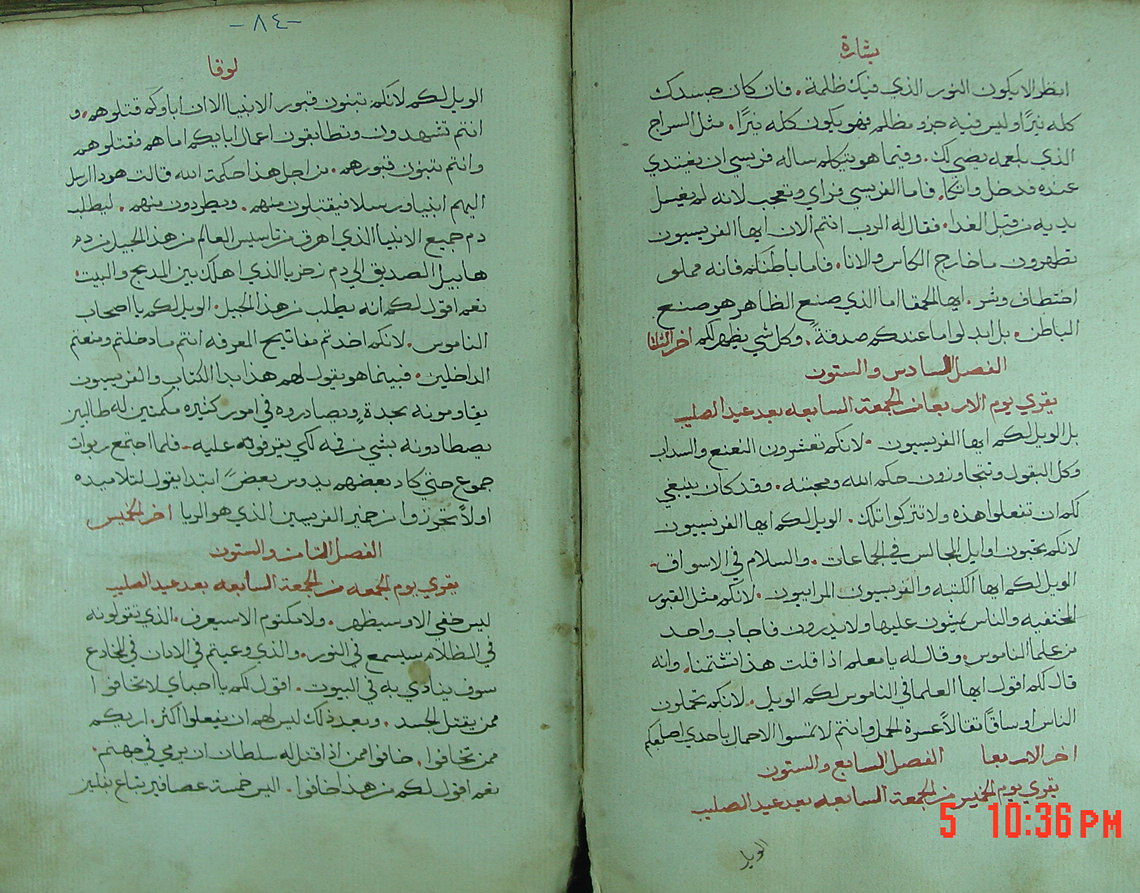 بشارة
انظر الا يكون النور الذي فيك ظلمة. فان كان جسدك
كله نيرًا وليس فيه جزو مظلم فهو يكون كله نيرًا. مثل السراج
الذي بلمعه يضي لك. وفيما هو يتكلم ساله فريسي ان يغتدي
عنده فدخل واتكا. فاما الفريسي فراي وتعجب لانه لم يغسل
يديه من قبل الغدا. فقال له الرب انتم الان ايها الفريسيون
تطهرون ما خارج الكاس والانا. فاما باطنكم فانه مملو
اختطاف وشر. ايها الجهفا اما الذي صنع الظاهر هو صنع
الباطن. بل ابدلوا ما عندكم صدقةً. وكل شي يطهر لكم اخر الثلثا
الفصل السادس والستون
يقري يوم الاربعا من الجمعة السابعه بعد عيد الصليب
بل الويل لكم ايها الفريسيون. لانكم تعشرون النعنع والسداب
وكل البقول وتتجاوزون حكم الله ومحبته. وقد كان ينبغي
لكم ان تفعلوا هذه ولا تتركوا تلك. الويل لكم ايها الفريسيون
لانكم تحبون اوايل المجالس في الجماعات. والسلام في الاسواق.
الويل لكم ايها الكتبه والفريسيون المرايون. لانكم مثل القبور
المختفيه والناس يمشون عليها ولا يدرون فاجاب واحد
من علما الناموس. وقال له يا معلم اذا قلت هذا تشتمنا. وانه
قال لكم اقول ايها العلما في الناموس لكم الويل. لانكم تحملون
الناس اوساقًا ثقالاً عسرة الحمل وانتم لا تمسوا الاحمال باحدي اصابعكم
اخر الاربعا الفصل السابع والستون
يقري يوم الخميس من الجمعة السابعه بعد عيد الصليب
الويل
-٨٤-
لوقا
الويل لكم لانكم تبنون قبور الانبيا الان اباوكم قتلوهم. و
انتم تشهدون وتطابقون اعمال ابايكم اما هم فقتلوهم
وانتم تبنون قبورهم. من اجل هذا حكمة الله قالت هوذا ارسل
اليهم انبيا ورسلا فيقتلون منهم. ويطردون منهم. ليطلب
دم جميع الانبيا الذي اهرق من تاسيس العالم من هذا الجيل من دم
هابيل الصديق الي دم زخريا الذي اهلك بين المدبح والبيت.
نعم اقول لكم انه يطلب من هذا الجيل. الويل لكم يا اصحاب
الناموس. لانكم اخدتم مفاتيح المعرفه انتم ما دخلتم ومنعتم
الداخلين. فبينما هو يقول لهم هذا بدا الكتاب والفريسيون
يقاومونه بحدةٍ ويصادروه في امور كثيره مكمنين له طالبين
يصطادونه بشي من فمه لكي يقرفونه عليه. فلما اجتمع ربوات
جموع حتي كاد بعضهم يدوس بعضً ابتدا يقول لتلاميده
اولاً تحرزوا من خمير الفريسيين الذي هو الريا اخر الخميس
الفصل الثامن والستون
يقري يوم الجمعه من الجمعة السابعه بعد عيد الصليب
ليس خفي الا وسيظهر. ولا مكتوم الا سيعرف. الذي تقولونه
في الظلام سيسمع في النور. والذي وعيتم في الادان في المخادع
سوف ينادي به في البيوت. اقول لكم يا احباي لا تخافوا
ممن يقتل الجسد. وبعد ذلك ليس لهم ان يفعلوا اكثر. اريكم
ممن تخافوا. خافوا ممن اذا قتل له سلطان ان يرمي في جهنم.
نعم اقول لكم من هذا خافوا. اليس خمسة عصافير تباع بفلين
5 10:36 PM